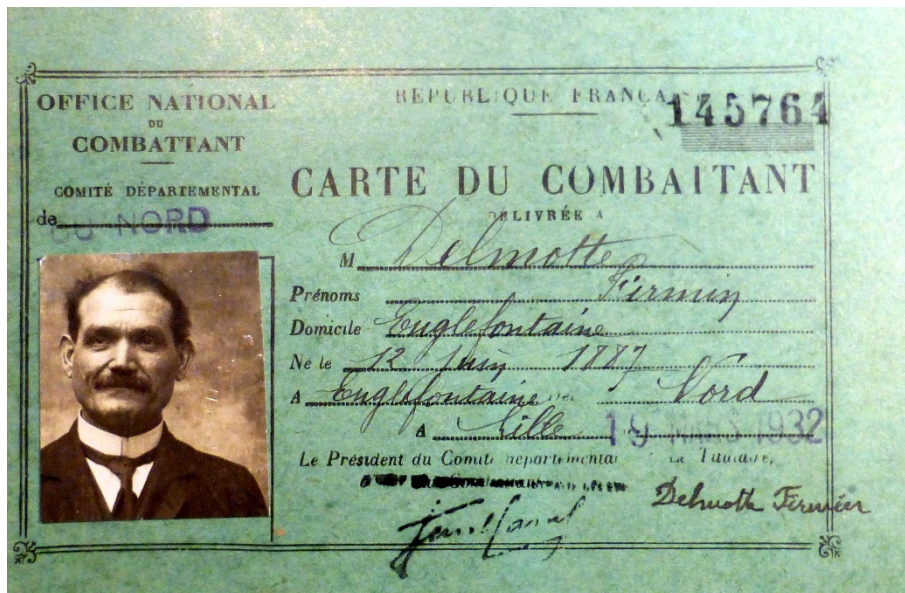 OFFICE NATIONAL
DU
COMBATTANT
COMITÉ DÉPARTEMENTAL
de DU NORD
RÉPUBLIQUE FRANÇA
145764
CARTE DU COMBATTANT
DÉLIVRÉE A
M Delmotte
Prénoms Firmin
Domicile Englefontaine
Né le 12 Juin 1887
A Englefontaine Nord
A Lille 19 MARS 1932
Le Président du Comité départemental Le Titulaire,
Delmotte Firmin